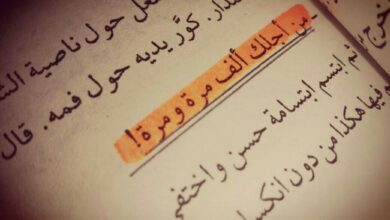 عل حول ناصية الش
دار. كوّر يديه حول فمه. قال
- من أجلك ألف مرة ومرة!
خرج
ثم ابتسم ابتسامة حسن واختفى
فيها هكذا من دون انكسار